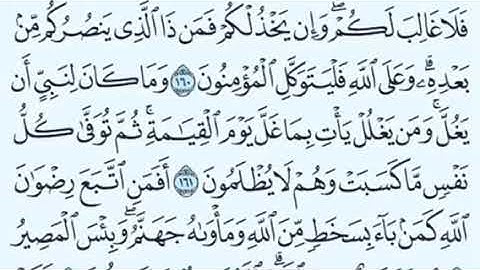 فَلَا غَالِبَ لَكُمْ ۖ وَإِن يَخْذُلْكُمْ فَمَن ذَا الَّذِي يَنصُرُكُم مِّنۢ
بَعْدِهِۦ ۗ وَعَلَى اللَّهِ فَلْيَتَوَكَّلِ الْمُؤْمِنُونَ ١٦٠ وَمَا كَانَ لِنَبِيٍّ أَن
يَغُلَّ ۚ وَمَن يَغْلُلْ يَأْتِ بِمَا غَلَّ يَوْمَ الْقِيَامَةِ ۚ ثُمَّ تُوَفَّىٰ كُلُّ
نَفْسٍ مَّا كَسَبَتْ وَهُمْ لَا يُظْلَمُونَ ١٦١ أَفَمَنِ اتَّبَعَ رِضْوَانَ
اللَّهِ كَمَنۢ بَاءَ بِسَخَطٍ مِّنَ اللَّهِ وَمَأْوَاهُ جَهَنَّمُ ۚ وَبِئْسَ الْمَصِيرُ